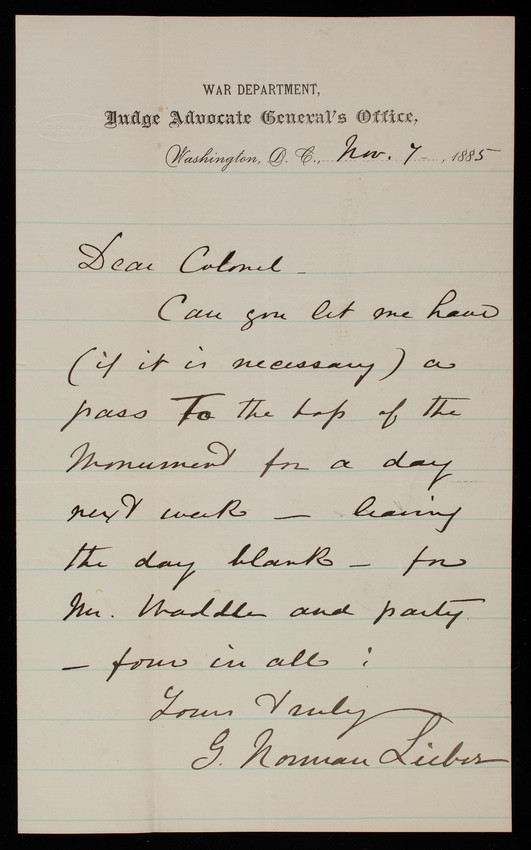 WAR DEPARTMENT,
Judge Advocate General's Office,
Washington, D. C., Nov. 7, 1885
Dear Colonel -
Can you let me have
(if it is necessary) a
pass To the top of the
Monument for a day
next week - leaving
the day blank - for
Mr. Waddle and party
- four in all ;
Yours Truly
G. Norman Lieber